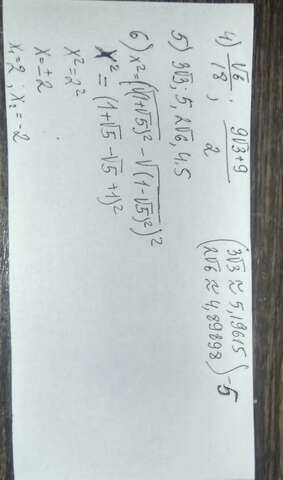 4) √6/18 ; (9√3+9)/2
5) 3√3; 5, 2√6, 4.5
(3√3 ≈ 5,19615
2√6 ≈ 4,89898) -5
6) x² = (√(1+√5)² - √(1-√5)²)²
x² = (1+√5 -√5 +1)²
x² = 2²
x = ±2
x = 2 ; x₂ = -2